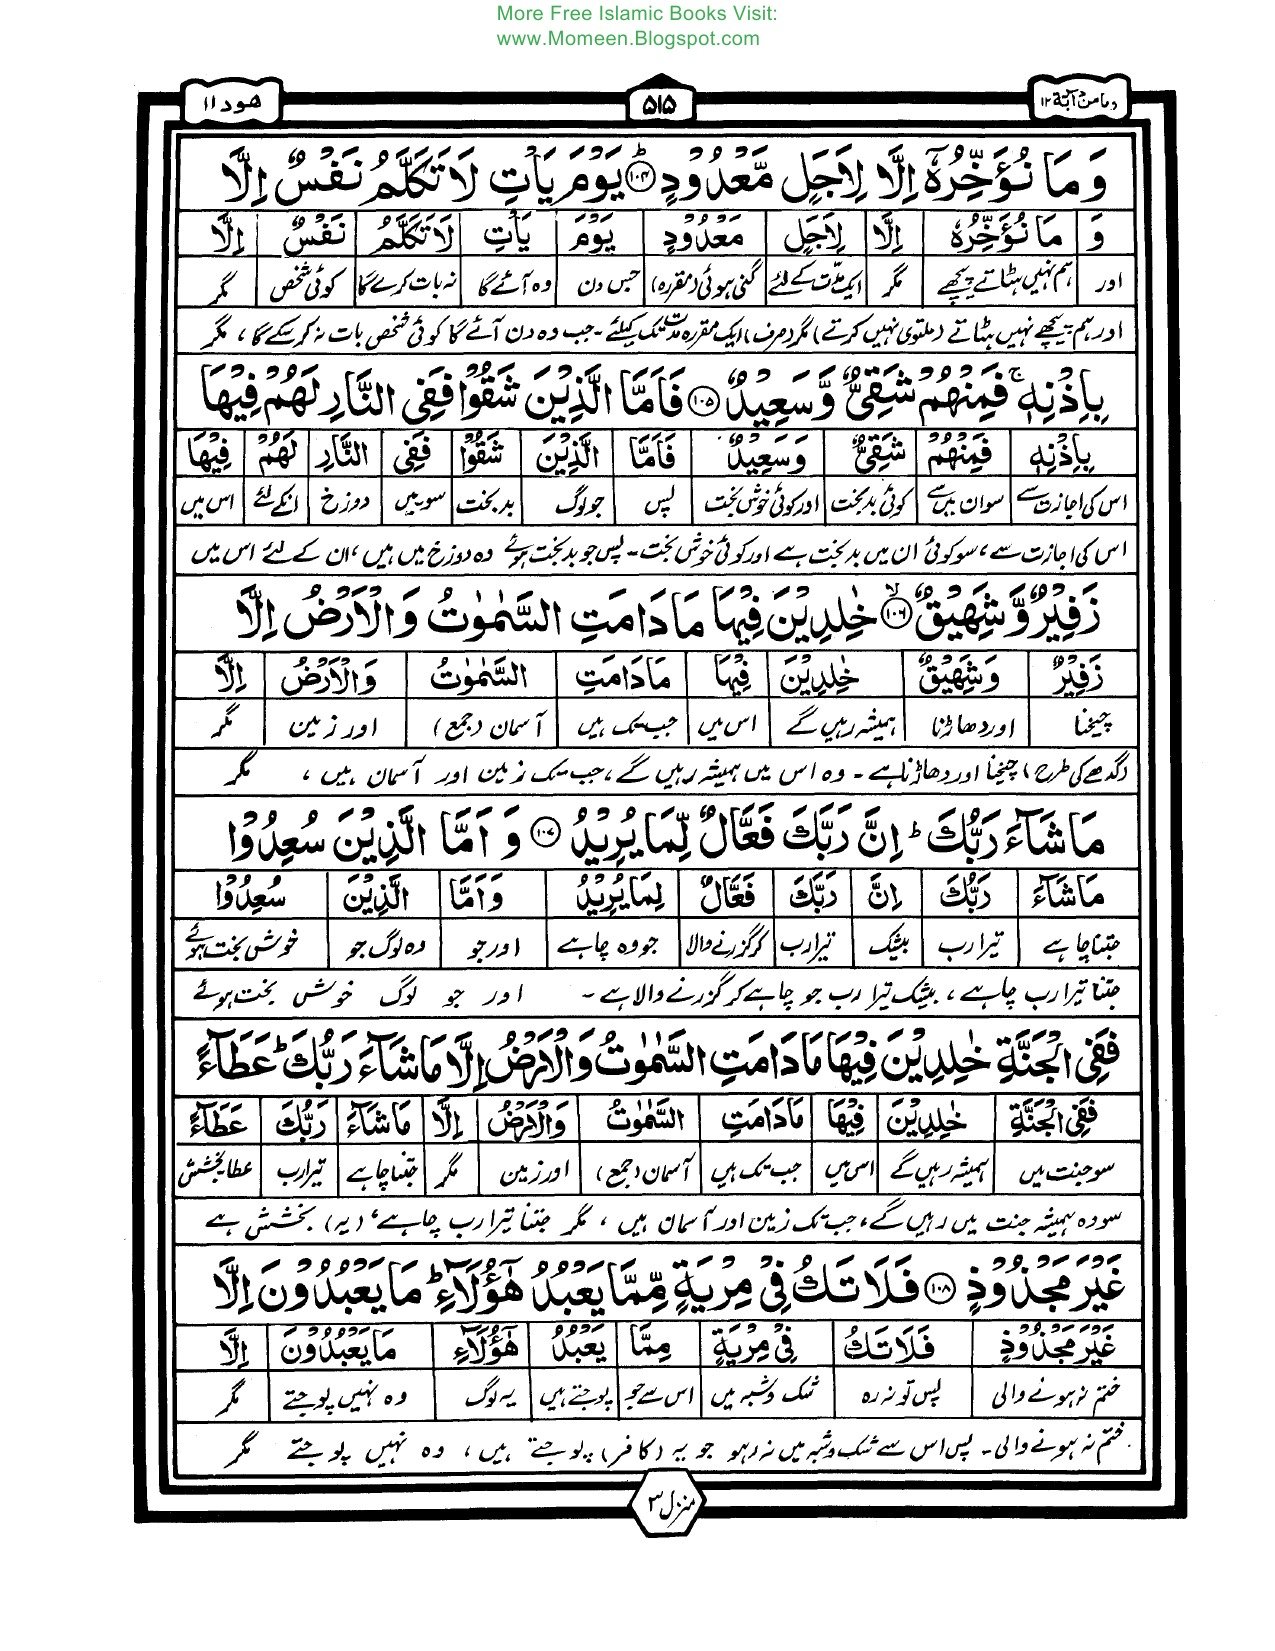 More Free Islamic Books Visit:
www.Momeen.Blogspot.com
وما من دآبة ۱۲
۵۱۵
ھود ۱۱
وَمَا نُؤَخِّرُهٗٓ اِلَّا لِاَجَلٍ مَّعْدُوْدٍ ؕ ۱۰۴ يَوْمَ يَاْتِ لَا تَكَلَّمُ نَفْسٌ اِلَّا
وَ مَا نُؤَخِّرُهٗ اِلَّا لِاَجَلٍ مَعْدُوْدٍ يَوْمَ يَاْتِ لَا تَكَلَّمُ نَفْسٌ اِلَّا
اور ہم نہیں ہٹاتے پیچھے مگر ایک مدّت کے لئے گنی ہوئی (مقررہ) جس دن وہ آئے گا نہ بات کرے گا کوئی شخص مگر
اور ہم پیچھے نہیں ہٹاتے (ملتوی نہیں کرتے) مگر (صرف) ایک مقررہ مدت تک کیلئے ۔ جب وہ دن آئے گا کوئی شخص بات نہ کرسکے گا ، مگر
بِاِذْنِهٖ ۚ فَمِنْهُمْ شَقِيٌّ وَّسَعِيْدٌ ۱۰۵ فَاَمَّا الَّذِيْنَ شَقُوْا فَفِي النَّارِ لَهُمْ فِيْهَا
بِاِذْنِهٖ فَمِنْهُمْ شَقِيٌّ وَسَعِيْدٌ فَاَمَّا الَّذِيْنَ شَقُوْا فَفِي النَّارِ لَهُمْ فِيْهَا
اس کی اجازت سے سو ان میں سے کوئی بدبخت اور کوئی خوش بخت پس جو لوگ بدبخت سو میں دوزخ انکے لئے اس میں
اس کی اجازت سے ، سو کوئی ان میں بدبخت ہے اور کوئی خوش بخت ۔ پس جو بدبخت ہوئے وہ دوزخ میں ہیں ، ان کے لئے اس میں
زَفِيْرٌ وَّشَهِيْقٌ ۙ ۱۰۶ خٰلِدِيْنَ فِيْهَا مَا دَامَتِ السَّمٰوٰتُ وَالْاَرْضُ اِلَّا
زَفِيْرٌ وَشَهِيْقٌ خٰلِدِيْنَ فِيْهَا مَا دَامَتِ السَّمٰوٰتُ وَالْاَرْضُ اِلَّا
چیخنا اور دھاڑنا ہمیشہ رہیں گے اس میں جب تک ہیں آسمان (جمع) اور زمین مگر
(گدھے کی طرح) چیخنا اور دھاڑنا ہے ۔ وہ اس میں ہمیشہ رہیں گے ، جب تک زمین اور آسمان ہیں ، مگر
مَا شَآءَ رَبُّكَ ؕ اِنَّ رَبَّكَ فَعَّالٌ لِّمَا يُرِيْدُ ۱۰۷ وَاَمَّا الَّذِيْنَ سُعِدُوْا
مَا شَآءَ رَبُّكَ اِنَّ رَبَّكَ فَعَّالٌ لِمَا يُرِيْدُ وَاَمَّا الَّذِيْنَ سُعِدُوْا
جتنا چاہے تیرا رب بیشک تیرا رب کر گزرنے والا جو وہ چاہے اور جو وہ لوگ جو خوش بخت ہوئے
جتنا تیرا رب چاہے ، بیشک تیرا رب جو چاہے کر گزرنے والا ہے ۔ اور جو لوگ خوش بخت ہوئے
فَفِي الْجَنَّةِ خٰلِدِيْنَ فِيْهَا مَا دَامَتِ السَّمٰوٰتُ وَالْاَرْضُ اِلَّا مَا شَآءَ رَبُّكَ ؕ عَطَآءً
فَفِي الْجَنَّةِ خٰلِدِيْنَ فِيْهَا مَا دَامَتِ السَّمٰوٰتُ وَالْاَرْضُ اِلَّا مَا شَآءَ رَبُّكَ عَطَآءً
سو جنت میں ہمیشہ رہیں گے اس میں جب تک ہیں آسمان (جمع) اور زمین مگر جتنا چاہے تیرا رب عطا بخشش
سو وہ ہمیشہ جنت میں رہیں گے ، جب تک زمین اور آسمان ہیں ، مگر جتنا تیرا رب چاہے ، (یہ) بخشش ہے
غَيْرَ مَجْذُوْذٍ ۱۰۸ فَلَا تَكُ فِيْ مِرْيَةٍ مِّمَّا يَعْبُدُ هٰٓؤُلَآءِ ؕ مَا يَعْبُدُوْنَ اِلَّا
غَيْرَ مَجْذُوْذٍ فَلَا تَكُ فِيْ مِرْيَةٍ مِمَّا يَعْبُدُ هٰٓؤُلَآءِ مَا يَعْبُدُوْنَ اِلَّا
ختم نہ ہونے والی پس تو نہ رہ شک و شبہ میں اس سے جو پوجتے ہیں یہ لوگ وہ نہیں پوجتے مگر
ختم نہ ہونے والی ۔ پس اس سے شک و شبہ میں نہ رہو جو یہ (کافر) پوجتے ہیں ، وہ نہیں پوجتے مگر
منزل ۳